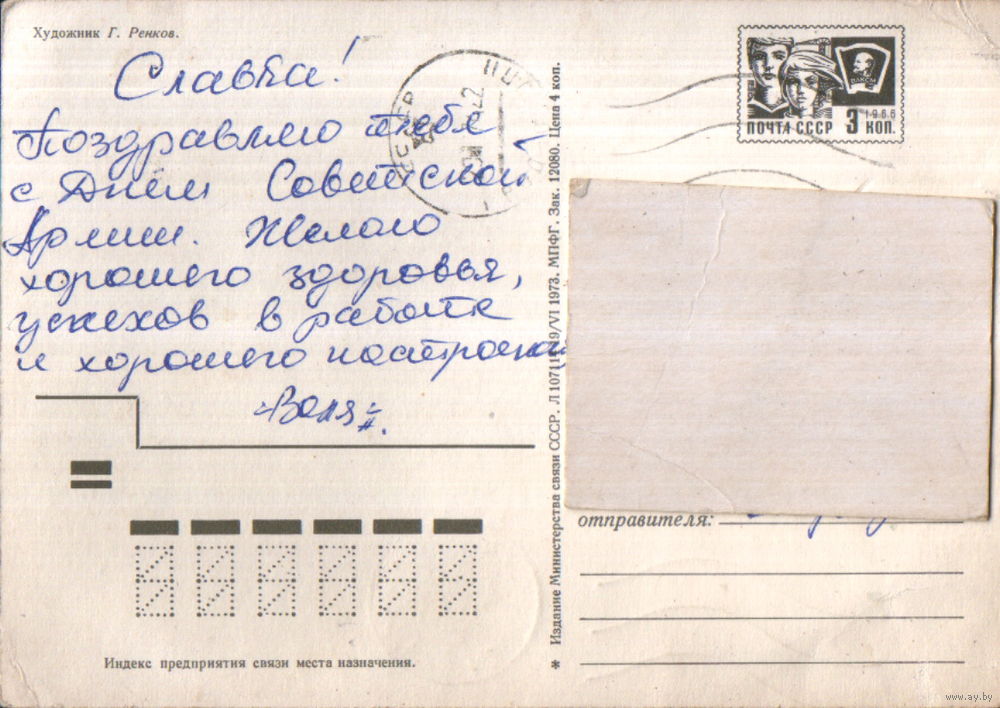 Художник Г. Ренков.
Славка!
Поздравляю тебя
с Днём Советской
Армии. Желаю
хорошего здоровья,
успехов в работе
и хорошего настроения
=Валя=
Индекс предприятия связи места назначения.
* Издание Министерства связи СССР. Л 107111 19/VI 1973. МПФГ. Зак. 12080. Цена 4 коп.
ВЛКСМ
1966
ПОЧТА СССР 3 КОП.
СССР
отправителя:
www.ay.by